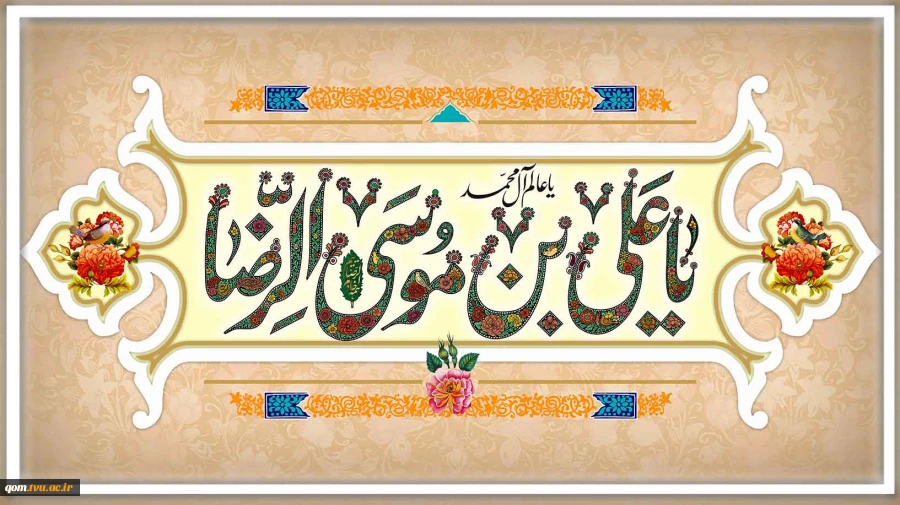 یا عالم آل محمّد
یا عَلی بن مُوسَی الرِّضَا
qom.tvu.ac.ir